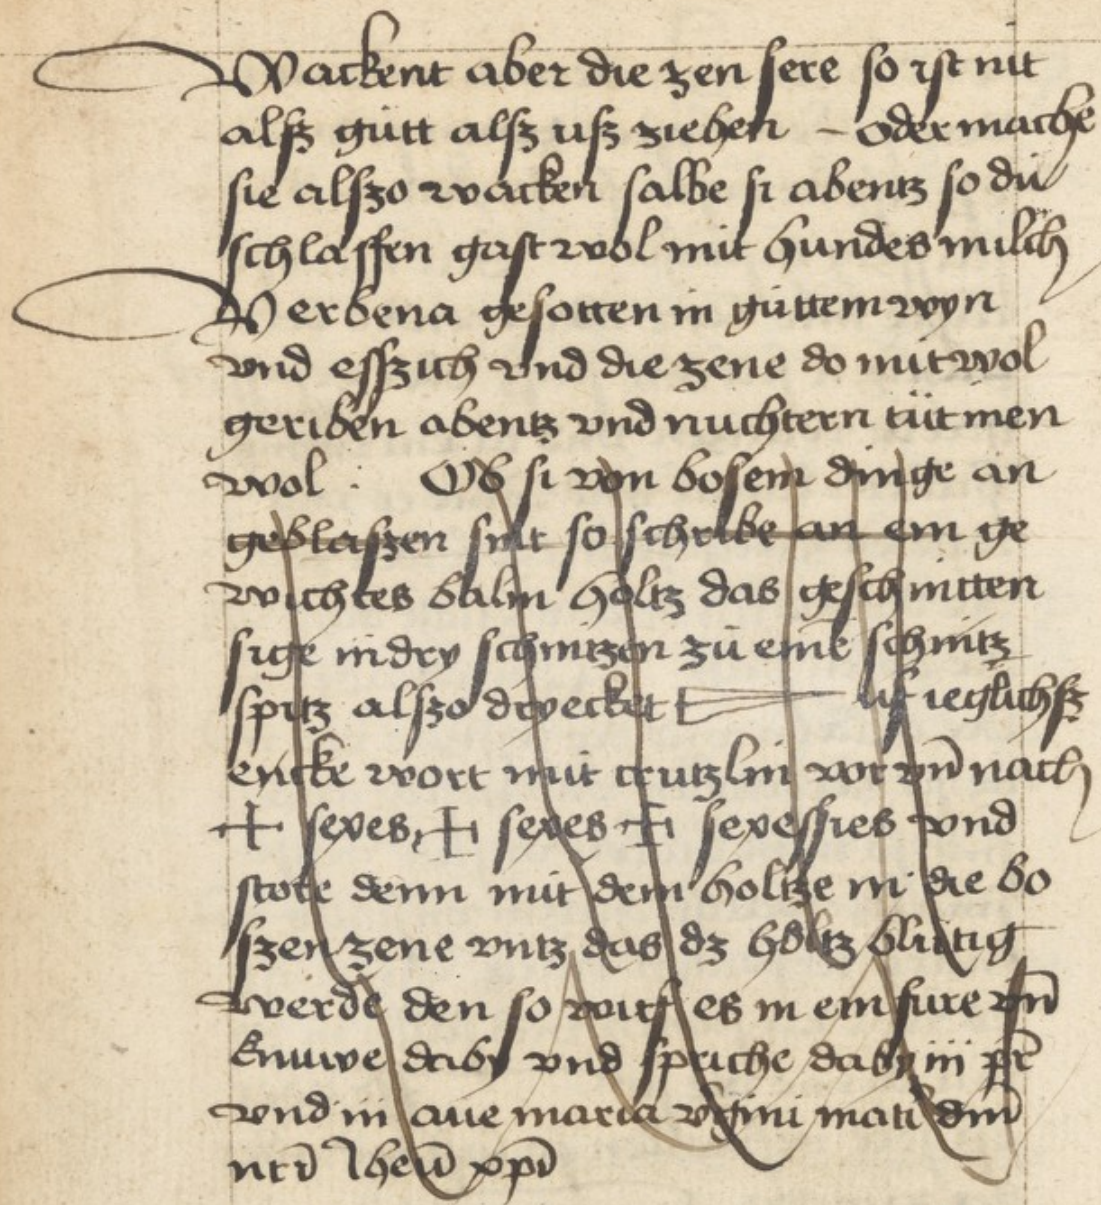 Wackent aber die zen sere so ist nit
alsz gütt alsz usz ziehen – oder mache
sie alszo wacken salbe si abentz so dü
schlaffen gast wol mit hundes milch
Verbena gesotten in güttem wyn
vnd esszich vnd die zene do mit wol
geriben abentz vnd nuchtern tüt inen
wol : Ob si von bosem dinge an
geblaszen sint so schribe an ein ge
wichtes balm holtz das geschnitten
sige in dry schnitzen zü eine schnitz
spitz alszo dryecket uf ieglichsz
encke wort mit crutzlin vor vn̄ nach
+ sexes + sexes + sexessies vnd
stote denn mit dem holtze in die bo
szen zene vntz das dz holtz blütig
werde den so wirf es in ein fure vn̄
knuwe daby vnd spriche daby iii pr̄
vnd iii aue maria vgini mat dni
nrī Jhesū xpī